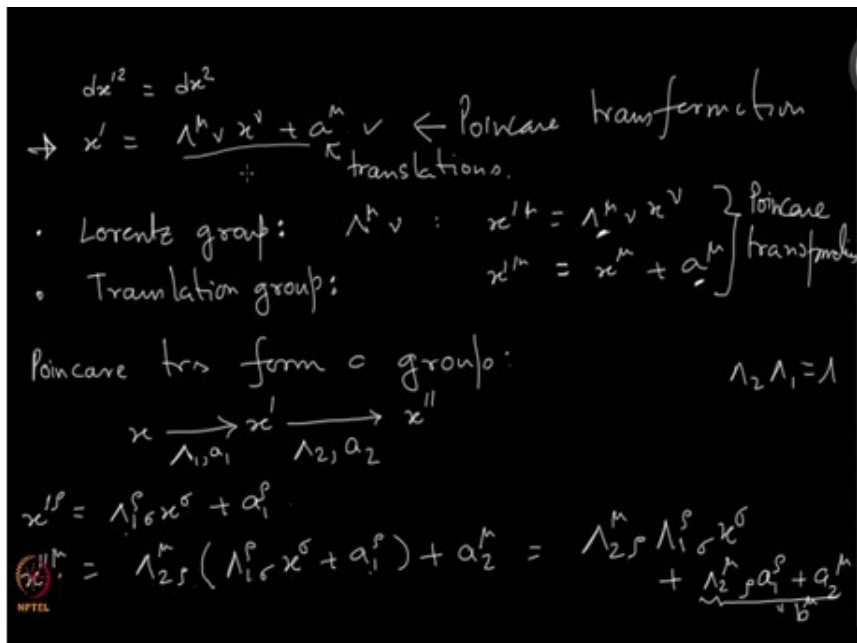 dx'² = dx²
→ x' = Λ^μ_ν x^ν + a^μ ← Poincare transformation
translations.
• Lorentz group: Λ^μ_ν : x'^μ = Λ^μ_ν x^ν } Poincare
• Translation group: x'^μ = x^μ + a^μ
Poincare trs form a group:
Λ₂ Λ₁ = Λ
x → x' → x''
Λ₁, a₁ Λ₂, a₂
x'^ρ = Λ₁^ρ_σ x^σ + a₁^ρ
x''^μ = Λ₂^μ_ρ (Λ₁^ρ_σ x^σ + a₁^ρ) + a₂^μ = Λ₂^μ_ρ Λ₁^ρ_σ x^σ
+ Λ₂^μ_ρ a₁^ρ + a₂^μ
b^μ
NPTEL